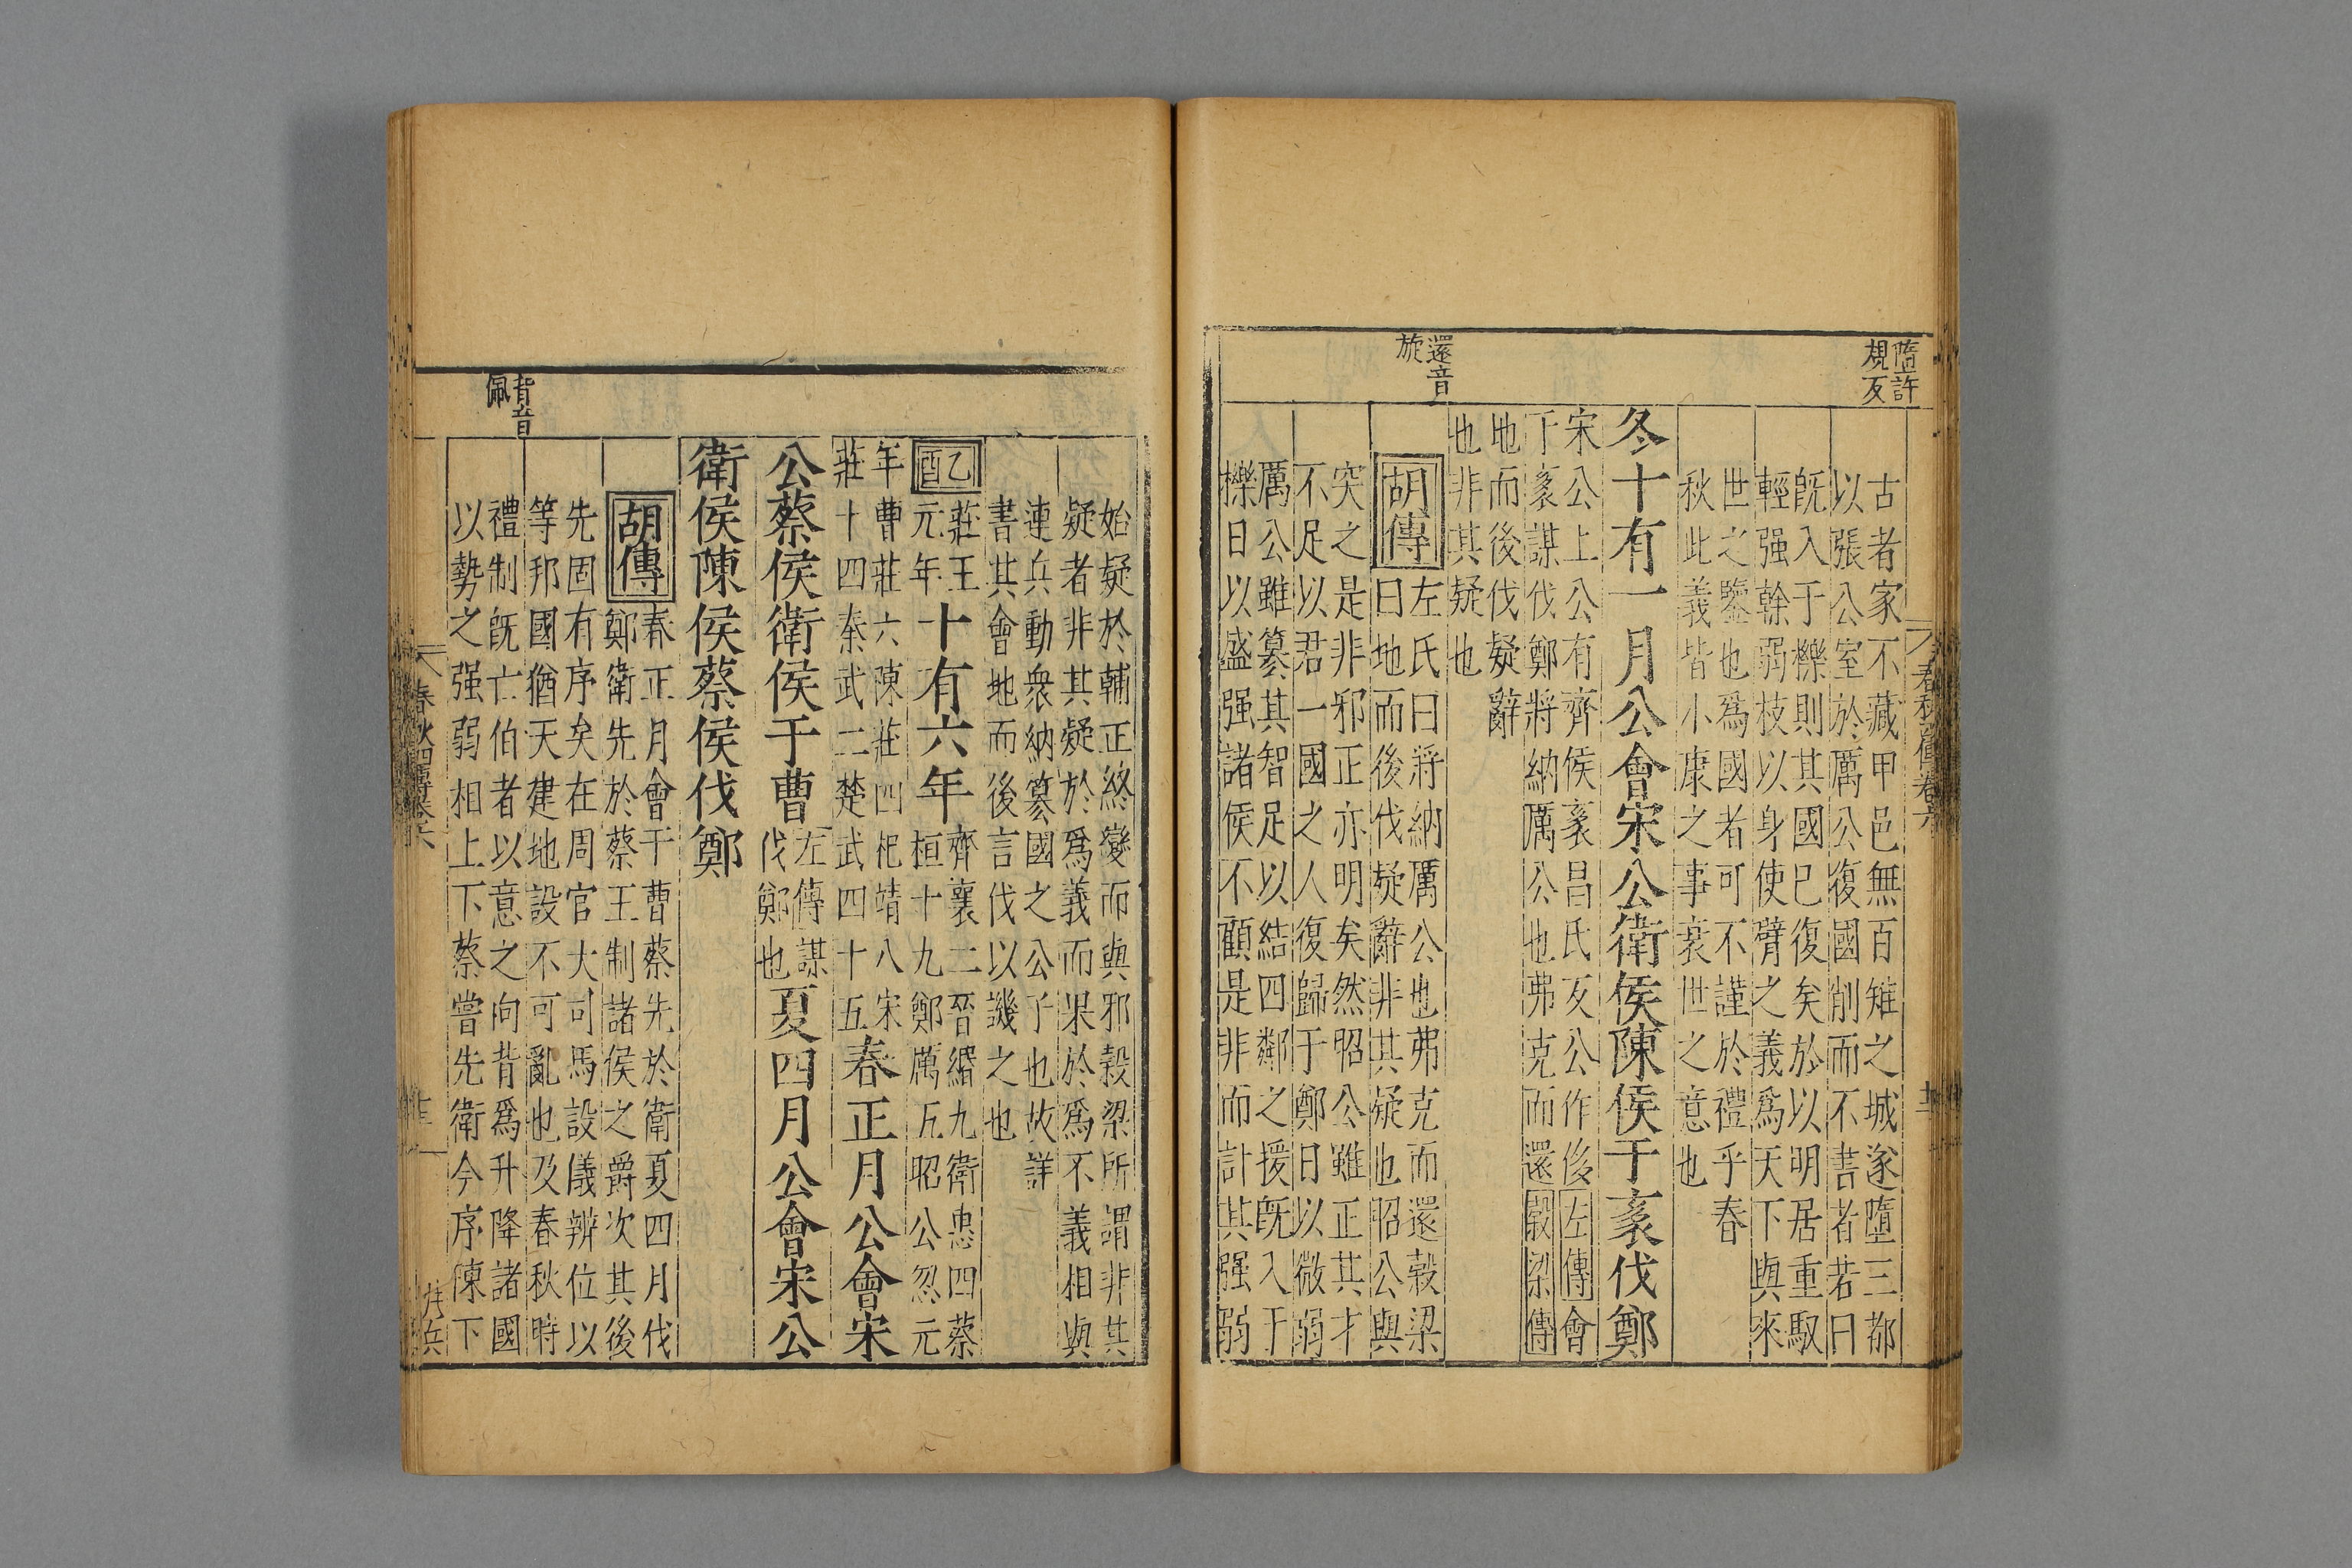 隳許
規反
還音
旋
古者家不藏甲邑無百雉之城遂墮三都
以張公室於厲公復國削而不書者若曰
既入于櫟則其國已復矣於以明居重馭
輕强幹弱枝以身使臂之義爲天下與來
世之鑒也爲國者可不謹於禮乎春
秋此義皆小康之事衰世之意也
冬十有一月公會宋公衛侯陳侯于袲伐鄭
宋公上公有齊侯袲昌氏反公作侈左傳會
于袲謀伐鄭將納厲公也弗克而還穀梁傳
地而後伐疑辭
也非其疑也
胡傳
左氏曰將納厲公也弗克而還穀梁
曰地而後伐疑辭非其疑也昭公與
突之是非邪正亦明矣然昭公雖正其才
不足以君一國之人復歸于鄭日以微弱
厲公雖簒其智足以結四鄰之援既入于
櫟日以盛强諸侯不顧是非而計其强弱
春秋四傳卷六
背音
佩
始疑於輔正終變而與邪穀梁所謂非其
疑者非其疑於爲義而果於爲不義相與
連兵動衆納簒國之公子也故詳
書其會地而後言伐以譏之也
乙酉
莊王
元年
十有六年
齊襄二晉緡九衛惠四蔡
桓十九鄭厲五昭公忽元
年曹莊六陳莊四杞靖八宋
莊十四秦武二楚武四十五
春正月公會宋
公蔡侯衛侯于曹
左傳謀
伐鄭也
夏四月公會宋公
衛侯陳侯蔡侯伐鄭
胡傳
春正月會于曹蔡先於衛夏四月伐
鄭衛先於蔡王制諸侯之爵次其後
先固有序矣在周官大司馬設儀辨位以
等邦國猶天建地設不可亂也及春秋時
禮制既亡伯者以意之向背爲升降諸國
以勢之强弱相上下蔡嘗先衛今序陳下
春秋四傳卷六